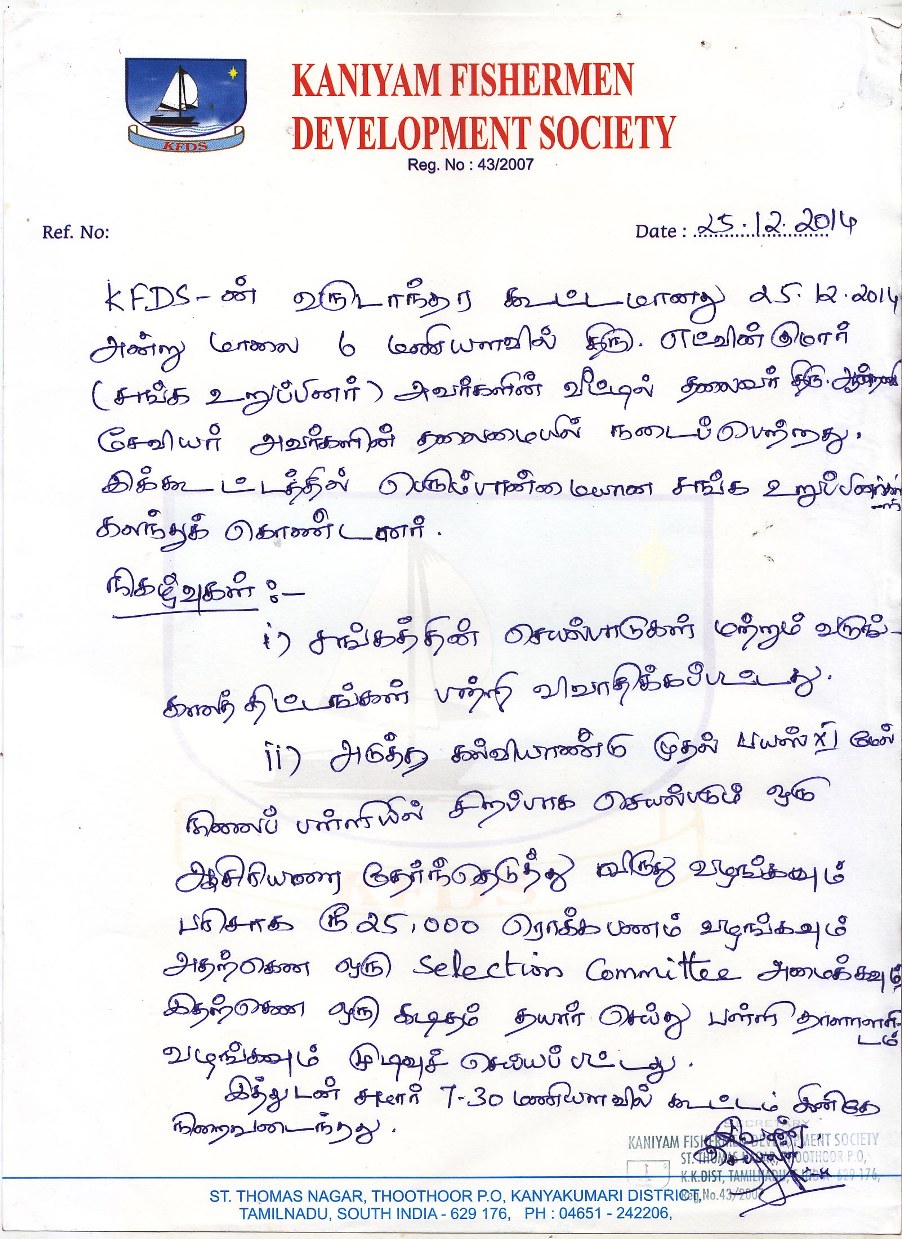 KFDS
KANIYAM FISHERMEN
DEVELOPMENT SOCIETY
Reg. No : 43/2007
Ref. No:
Date : 25.12.2014
KFDS-ன் வருடாந்தர கூட்டமானது 25.12.2014
அன்று மாலை 6 மணியளவில் திரு. எட்வின்குமார்
(சங்க உறுப்பினர்) அவர்களின் வீட்டில் தலைவர் திரு. ஆன்றனி
சேவியர் அவர்களின் தலைமையில் நடைப்பெற்றது.
இக்கூட்டத்தில் பெரும்பான்மையான சங்க உறுப்பினர்கள்
கலந்துக் கொண்டனர்.
நிகழ்வுகள் :-
i) சங்கத்தின் செயல்பாடுகள் மற்றும் வருங்-
காலத் திட்டங்கள் பற்றி விவாதிக்கப்பட்டது.
ii) அடுத்த கல்வியாண்டு முதல் பயஸ் XI மேல்
நிலைப் பள்ளியில் சிறப்பாக செயல்படும் ஒரு
ஆசிரியரை தேர்ந்தெடுத்து விருது வழங்கவும்
பரிசாக ரூ 25,000 ரொக்கபணம் வழங்கவும்
அதற்கென ஒரு Selection Committee அமைக்கவும்
இதற்கென ஒரு கடிதம் தயார் செய்து பள்ளி தாளாளரிடம்
வழங்கவும் முடிவுச் செய்யப்பட்டது.
இத்துடன் சுமார் 7-30 மணியளவில் கூட்டம் இனிதே
நிறைவடைந்தது.
SECRETARY
KANIYAM FISHERMEN DEVELOPMENT SOCIETY
ST. THOMAS NAGAR, THOOTHOOR P.O,
K.K.DIST, TAMILNADU, 629 176,
Reg.No.43/2007
ST. THOMAS NAGAR, THOOTHOOR P.O, KANYAKUMARI DISTRICT,
TAMILNADU, SOUTH INDIA - 629 176, PH : 04651 - 242206,